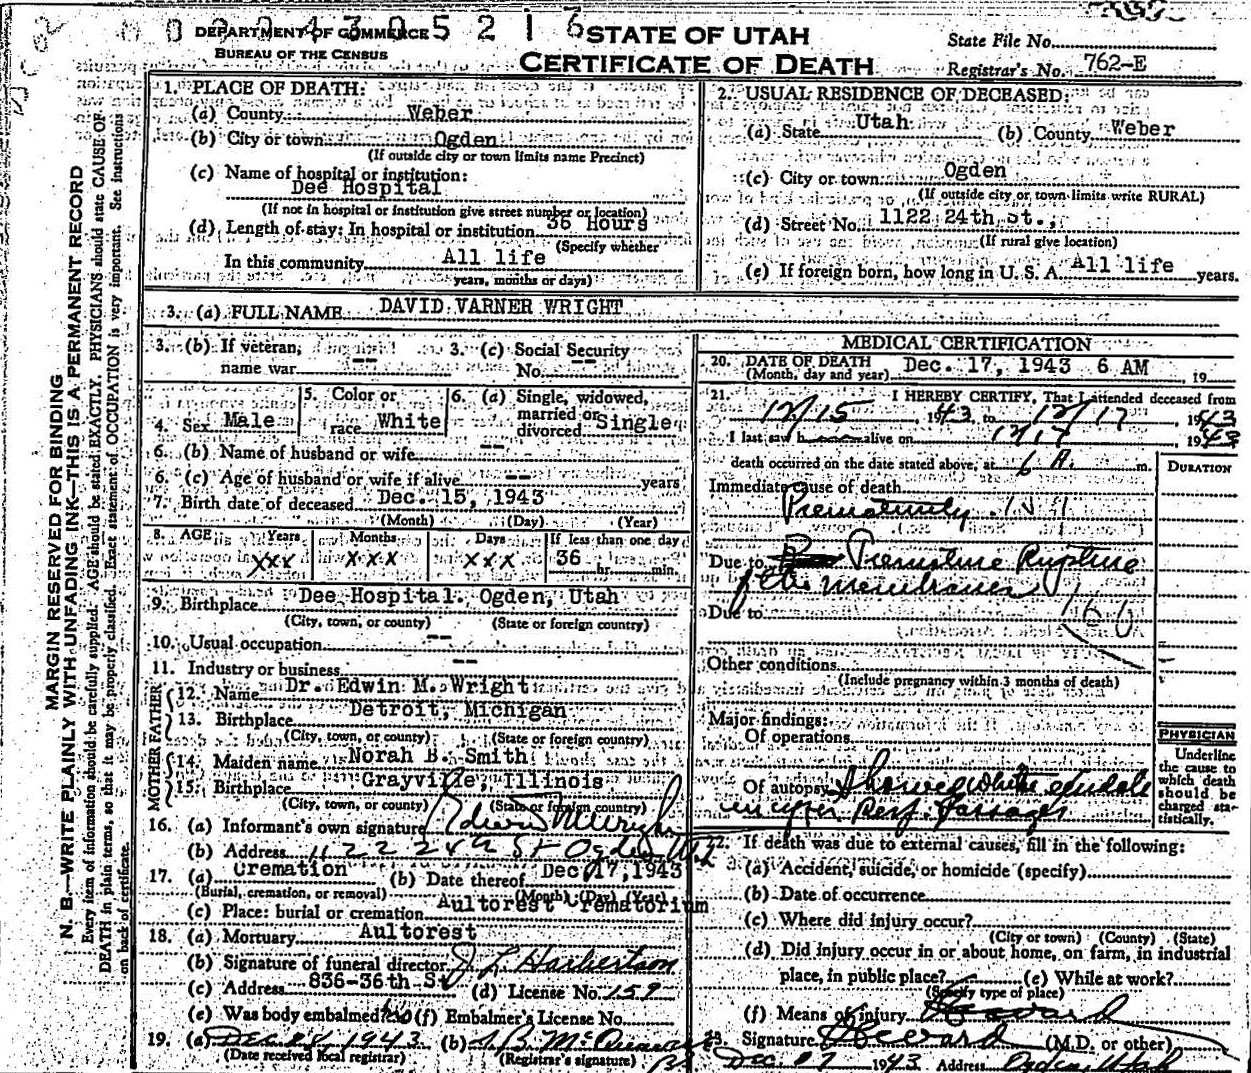 DEPARTMENT OF COMMERCE
BUREAU OF THE CENSUS
STATE OF UTAH
CERTIFICATE OF DEATH
State File No.
Registrar's No. 762-E
MARGIN RESERVED FOR BINDING
N. B.—WRITE PLAINLY WITH UNFADING INK—THIS IS A PERMANENT RECORD
Every item of information should be carefully supplied. AGE should be stated EXACTLY. PHYSICIANS should state CAUSE OF
DEATH in plain terms, so that it may be properly classified. Exact statement of OCCUPATION is very important. See instructions
on back of certificate.
1. PLACE OF DEATH:
(a) County Weber
(b) City or town Ogden
(If outside city or town limits name Precinct)
(c) Name of hospital or institution:
Dee Hospital
(If not in hospital or institution give street number or location)
(d) Length of stay: In hospital or institution 36 Hours
(Specify whether
In this community All life
years, months or days)
2. USUAL RESIDENCE OF DECEASED:
(a) State Utah (b) County Weber
(c) City or town Ogden
(If outside city or town limits write RURAL)
(d) Street No. 1122 24th St.,
(If rural give location)
(e) If foreign born, how long in U. S. A. All life years.
3. (a) FULL NAME DAVID VARNER WRIGHT
3. (b) If veteran, 3. (c) Social Security
name war -- No. --
4. Sex Male 5. Color or race White 6. (a) Single, widowed, married or divorced Single
6. (b) Name of husband or wife --
6. (c) Age of husband or wife if alive -- years
7. Birth date of deceased Dec. 15, 1943
(Month) (Day) (Year)
8. AGE Years Months Days If less than one day
xxx xxx xxx 36 hr. min.
9. Birthplace Dee Hospital. Ogden, Utah
(City, town, or county) (State or foreign country)
10. Usual occupation --
11. Industry or business --
FATHER
12. Name Dr. Edwin M. Wright
13. Birthplace Detroit, Michigan
(City, town, or county) (State or foreign country)
MOTHER
14. Maiden name Norah B. Smith
15. Birthplace Grayville, Illinois
(City, town, or county) (State or foreign country)
16. (a) Informant's own signature Edwin M Wright
(b) Address 1122 24th St Ogden Utah
17. (a) Cremation (b) Date thereof Dec 17, 1943
(Burial, cremation, or removal) (Month) (Day) (Year)
(c) Place: burial or cremation Aultorest Crematorium
18. (a) Mortuary Aultorest
(b) Signature of funeral director J L Harbertson
(c) Address 836-36th St (d) License No. 159
(e) Was body embalmed? No (f) Embalmer's License No.
19. (a) Dec 28, 1943 (b)
(Date received local registrar) (Registrar's signature)
MEDICAL CERTIFICATION
20. DATE OF DEATH Dec. 17, 1943 6 AM , 19
(Month, day and year)
21. I HEREBY CERTIFY, That I attended deceased from
12/15, 1943, to 12/17, 1943
I last saw h alive on 12/17, 1943
death occurred on the date stated above, at 6 A. m.
DURATION
Immediate cause of death
Prematurity
Due to Premature Rupture
of the membranes
Due to 160
Other conditions
(Include pregnancy within 3 months of death)
Major findings:
Of operations
Of autopsy Showed white exudate
in upper Resp. Passages
PHYSICIAN
Underline
the cause to
which death
should be
charged sta-
tistically.
22. If death was due to external causes, fill in the following:
(a) Accident, suicide, or homicide (specify)
(b) Date of occurrence
(c) Where did injury occur?
(City or town) (County) (State)
(d) Did injury occur in or about home, on farm, in industrial
place, in public place? (e) While at work?
(Specify type of place)
(f) Means of injury
23. Signature (M.D. or other)
Dec. 27 1943 Address Ogden, Utah